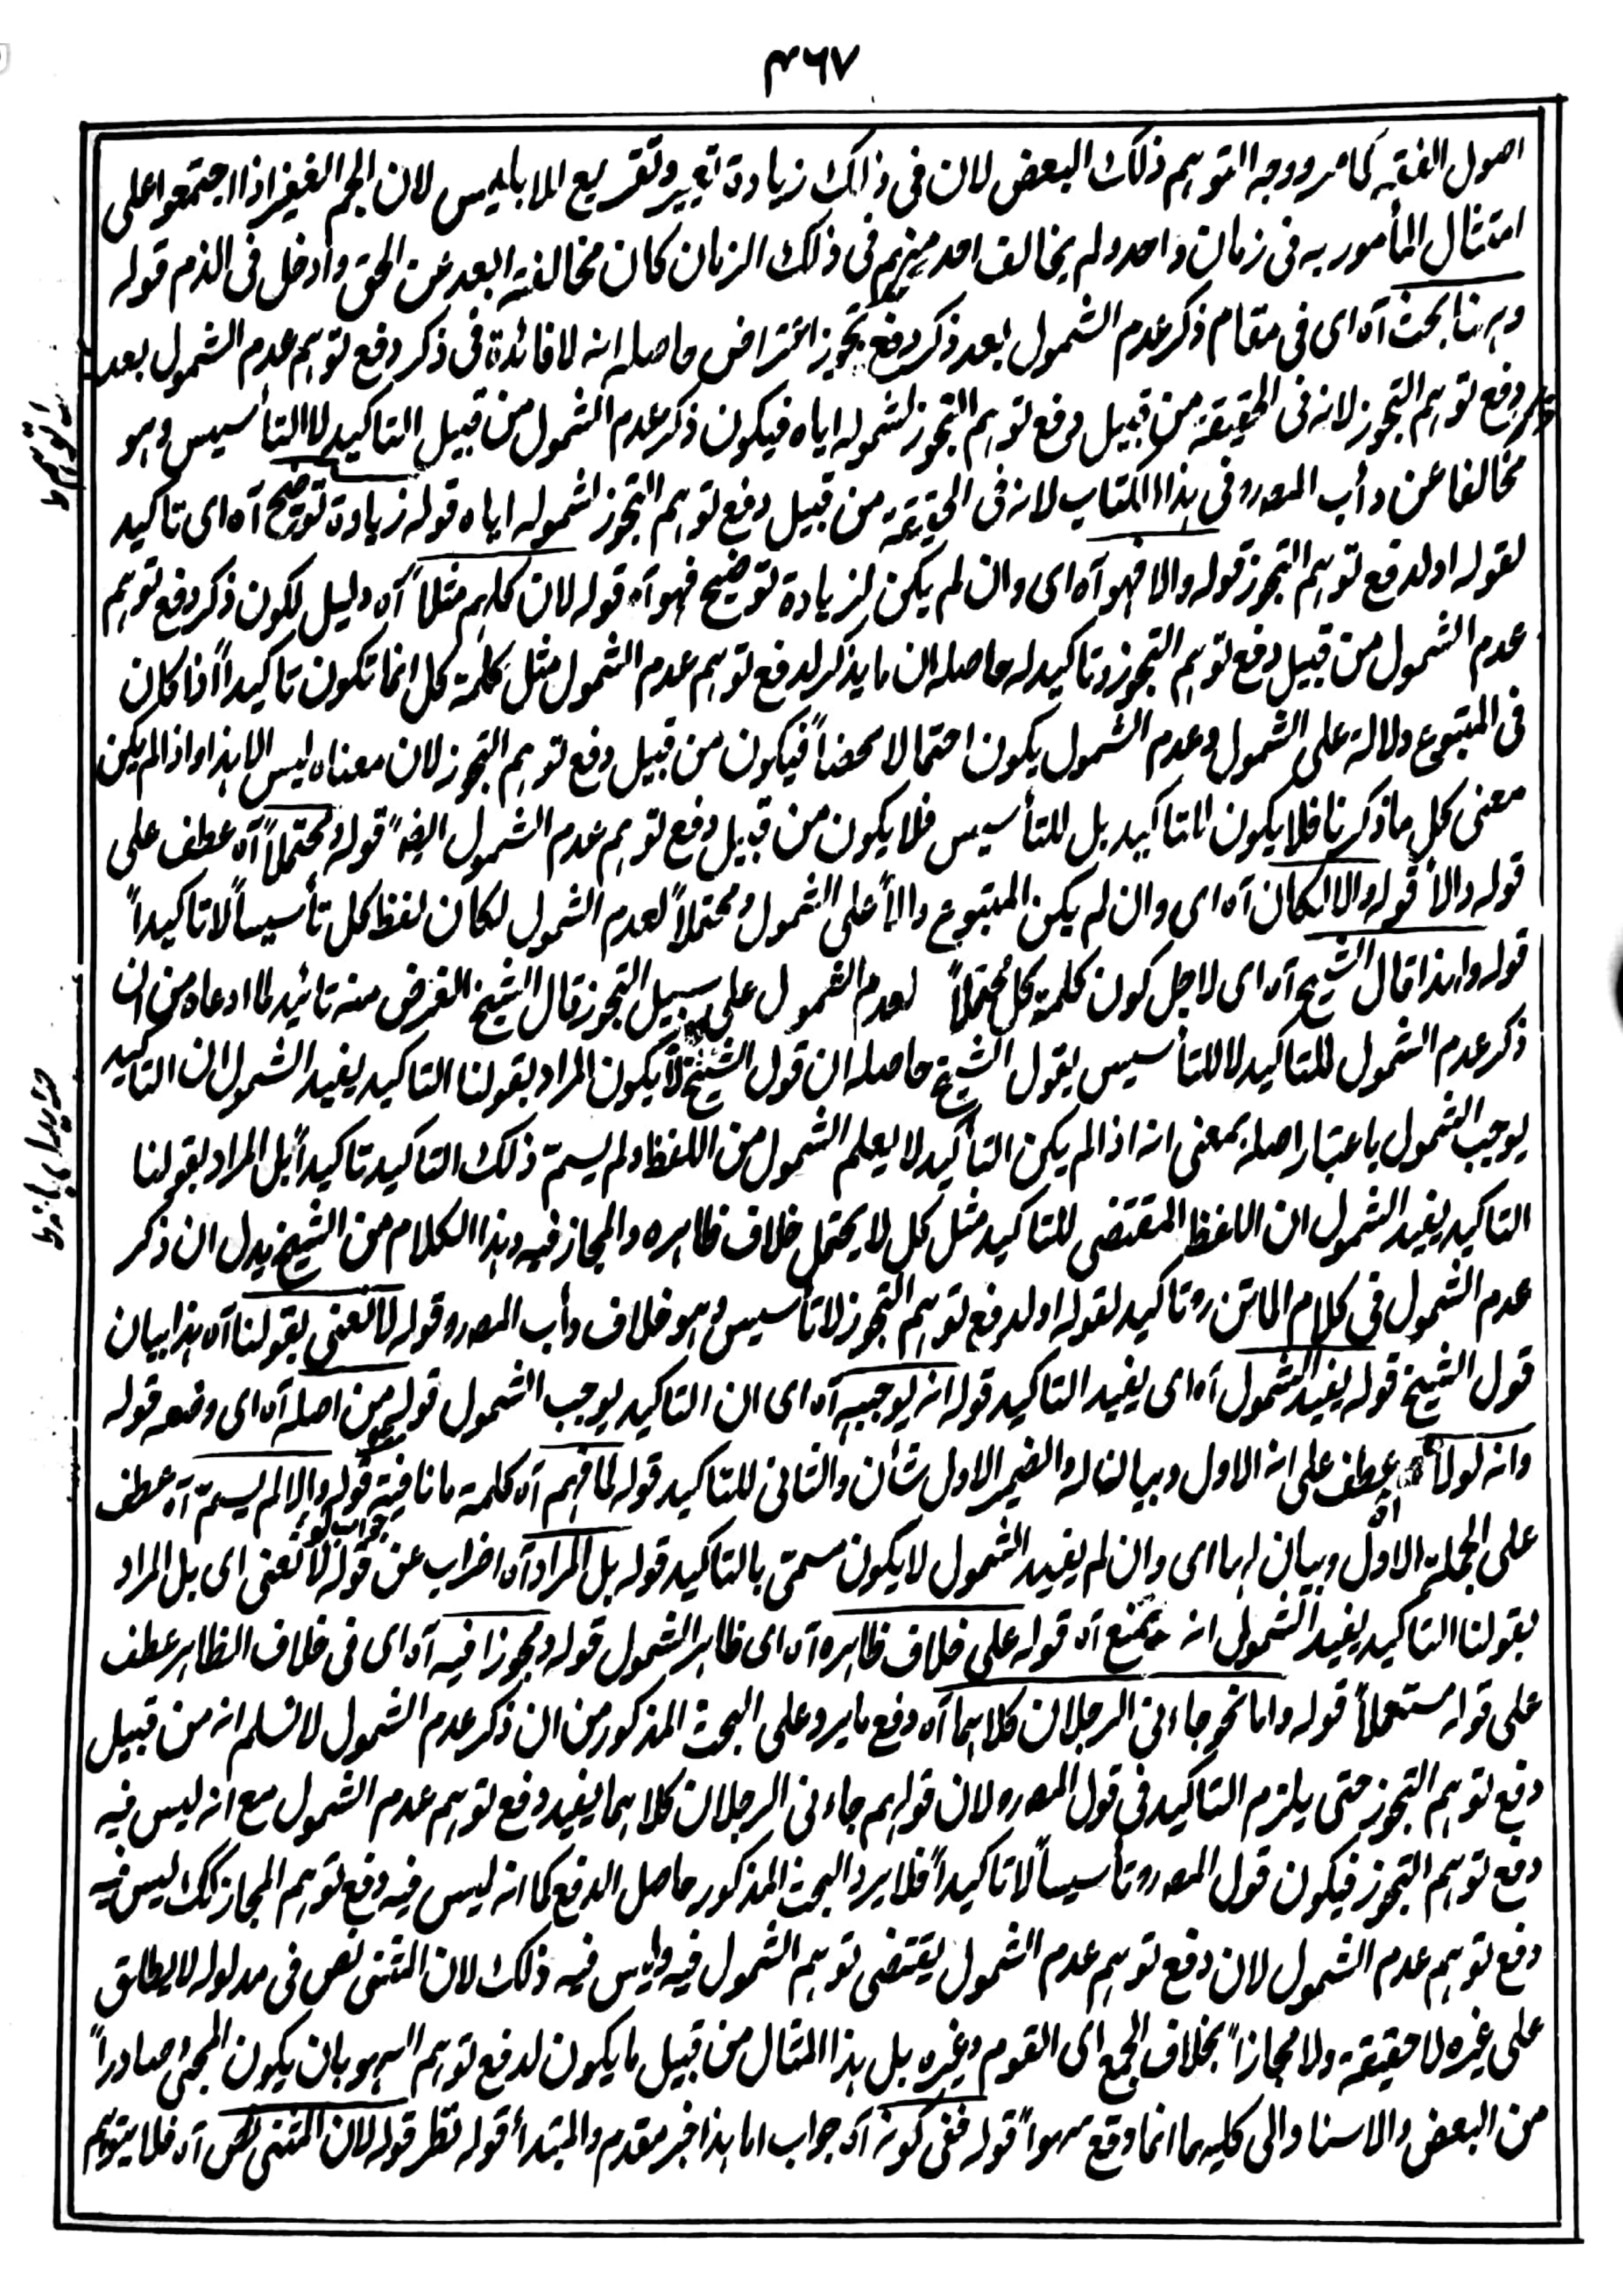 ٤٦٧
اصول الفقه كما مر ووجه التوهم ذلك البعض لان فى ذلك زيادة تعيير وتقريع لابليس لان الجم الغفير اذا اجتمعوا على
امتثال المأمور به فى زمان واحد ولم يخالف احد منهم فى ذلك الزمان كان مخالفته ابعد عن الحق وأدخل فى الذم قوله
وههنا بحث آه اى فى مقام ذكر عدم الشمول بعد ذكر دفع تجوز اعتراض حاصله انه لا فائدة فى ذكر دفع توهم عدم الشمول بعد
دفع توهم التجوز لانه فى الحقيقة من قبيل دفع توهم التجوز لشموله اياه فيكون ذكر عدم الشمول من قبيل التاكيد لا التأسيس وهو
مخالفا عن دأب المصر وفى هذا الكتاب لانه فى الحقيقة من قبيل دفع توهم التجوز لشموله اياه قوله زيادة توضيح آه اى تاكيد
لقوله او لدفع توهم التجوز قوله والا فهو آه اى وان لم يكن لزيادة توضيح فهو آه قوله لان كلهم مثلاً آه دليل لكون ذكر دفع توهم
عدم الشمول من قبيل دفع توهم التجوز وتاكيد له حاصله ان ما يذكر لدفع توهم عدم الشمول مثل كلمة كل انما تكون تاكيداً اذا كان
فى المتبوع دلالة على الشمول وعدم الشمول يكون احتمالا محضاً فيكون من قبيل دفع توهم التجوز لان معناه ليس الا هذا واذا لم يكن
معنى كل ما ذكرنا فلا يكون للتاكيد بل للتأسيس فلا يكون من قبيل دفع توهم عدم الشمول ايضاً قوله ومحتملاً آه عطف على
قوله دالاً قوله والا لكان آه اى وان لم يكن المتبوع دالاً على الشمول ومحتملاً لعدم الشمول لكان لفظ كل تأسيساً لا تاكيداً
قوله ولهذا قال الشيخ آه اى لاجل كون كلمة كل محتملاً لعدم الشمول على سبيل التجوز قال الشيخ الغرض منه تائيد لما ادعاه من ان
ذكر عدم الشمول للتاكيد لا للتأسيس بقول الشيخ حاصله ان قول الشيخ لا يكون المراد بقولنا التاكيد يفيد الشمول ان التاكيد
يوجب الشمول باعتبار اصله بمعنى انه اذا لم يكن التأكيد لا يعلم الشمول من اللفظ ولم يسم ذلك التاكيد تاكيداً بل المراد بقولنا
التاكيد يفيد الشمول ان اللفظ المقتضى للتاكيد مثل كل لا يحتمل خلاف ظاهره والمجاز فيه وهذا الكلام من الشيخ يدل ان ذكر
عدم الشمول فى كلام الماتن رو تاكيد لقوله او لدفع توهم التجوز لا تأسيس وهو خلاف دأب المصر وقوله لا نعنى بقولنا آه هذا بيان
قول الشيخ قوله يفيد الشمول آه اى يفيد التاكيد قوله انه يوجبه آه اى ان التاكيد يوجب الشمول قوله من اصله آه اى وضعه قوله
وانه لولاه عطف على انه الاول وبيان له والضمير الاول شأن والثانى للتاكيد قوله لما فهم آه كلمة ما نافية قوله والا لم يسم آه عطف
على الجملة الاول وبيان لها اى وان لم يفيد الشمول لا يكون سمى بالتاكيد قوله بل المراد آه اضراب عن قوله لا نعنى اى بل المراد
بقولنا التاكيد يفيد الشمول انه يمنع آه قوله على خلاف ظاهره آه اى ظاهر الشمول قوله ومجوزا فيه آه اى فى خلاف الظاهر عطف
على قوله مستعملاً قوله واما نحو جاءنى الرجلان كلاهما آه دفع ما يرد على البحث المذكور من ان ذكر عدم الشمول لا نسلم انه من قبيل
دفع توهم التجوز حتى يلزم التاكيد فى قول المصر ولان قولهم جاءنى الرجلان كلاهما يفيد دفع توهم عدم الشمول مع انه ليس فيه
دفع توهم التجوز فيكون قول المصر وتأسيساً لا تاكيداً فلا يرد البحث المذكور حاصل الدفع كما انه ليس فيه دفع توهم المجاز كك ليس فيه
دفع توهم عدم الشمول لان دفع توهم عدم الشمول يقتضى توهم الشمول فيه وليس فيه ذلك لان المثنى نص فى مدلوله لا يطلق
على غيره لا حقيقة ولا مجازاً بخلاف الجمع اى القوم وغيره بل هذا المثال من قبيل ما يكون لدفع توهم السهو بان يكون المجئ صادراً
من البعض والاسناد الى كليهما انما وقع سهواً قوله ففى كونه آه جواب اما هذا خبر مقدم والمبتدأ قوله نظر قوله لان المثنى نص آه فلا يتوهم